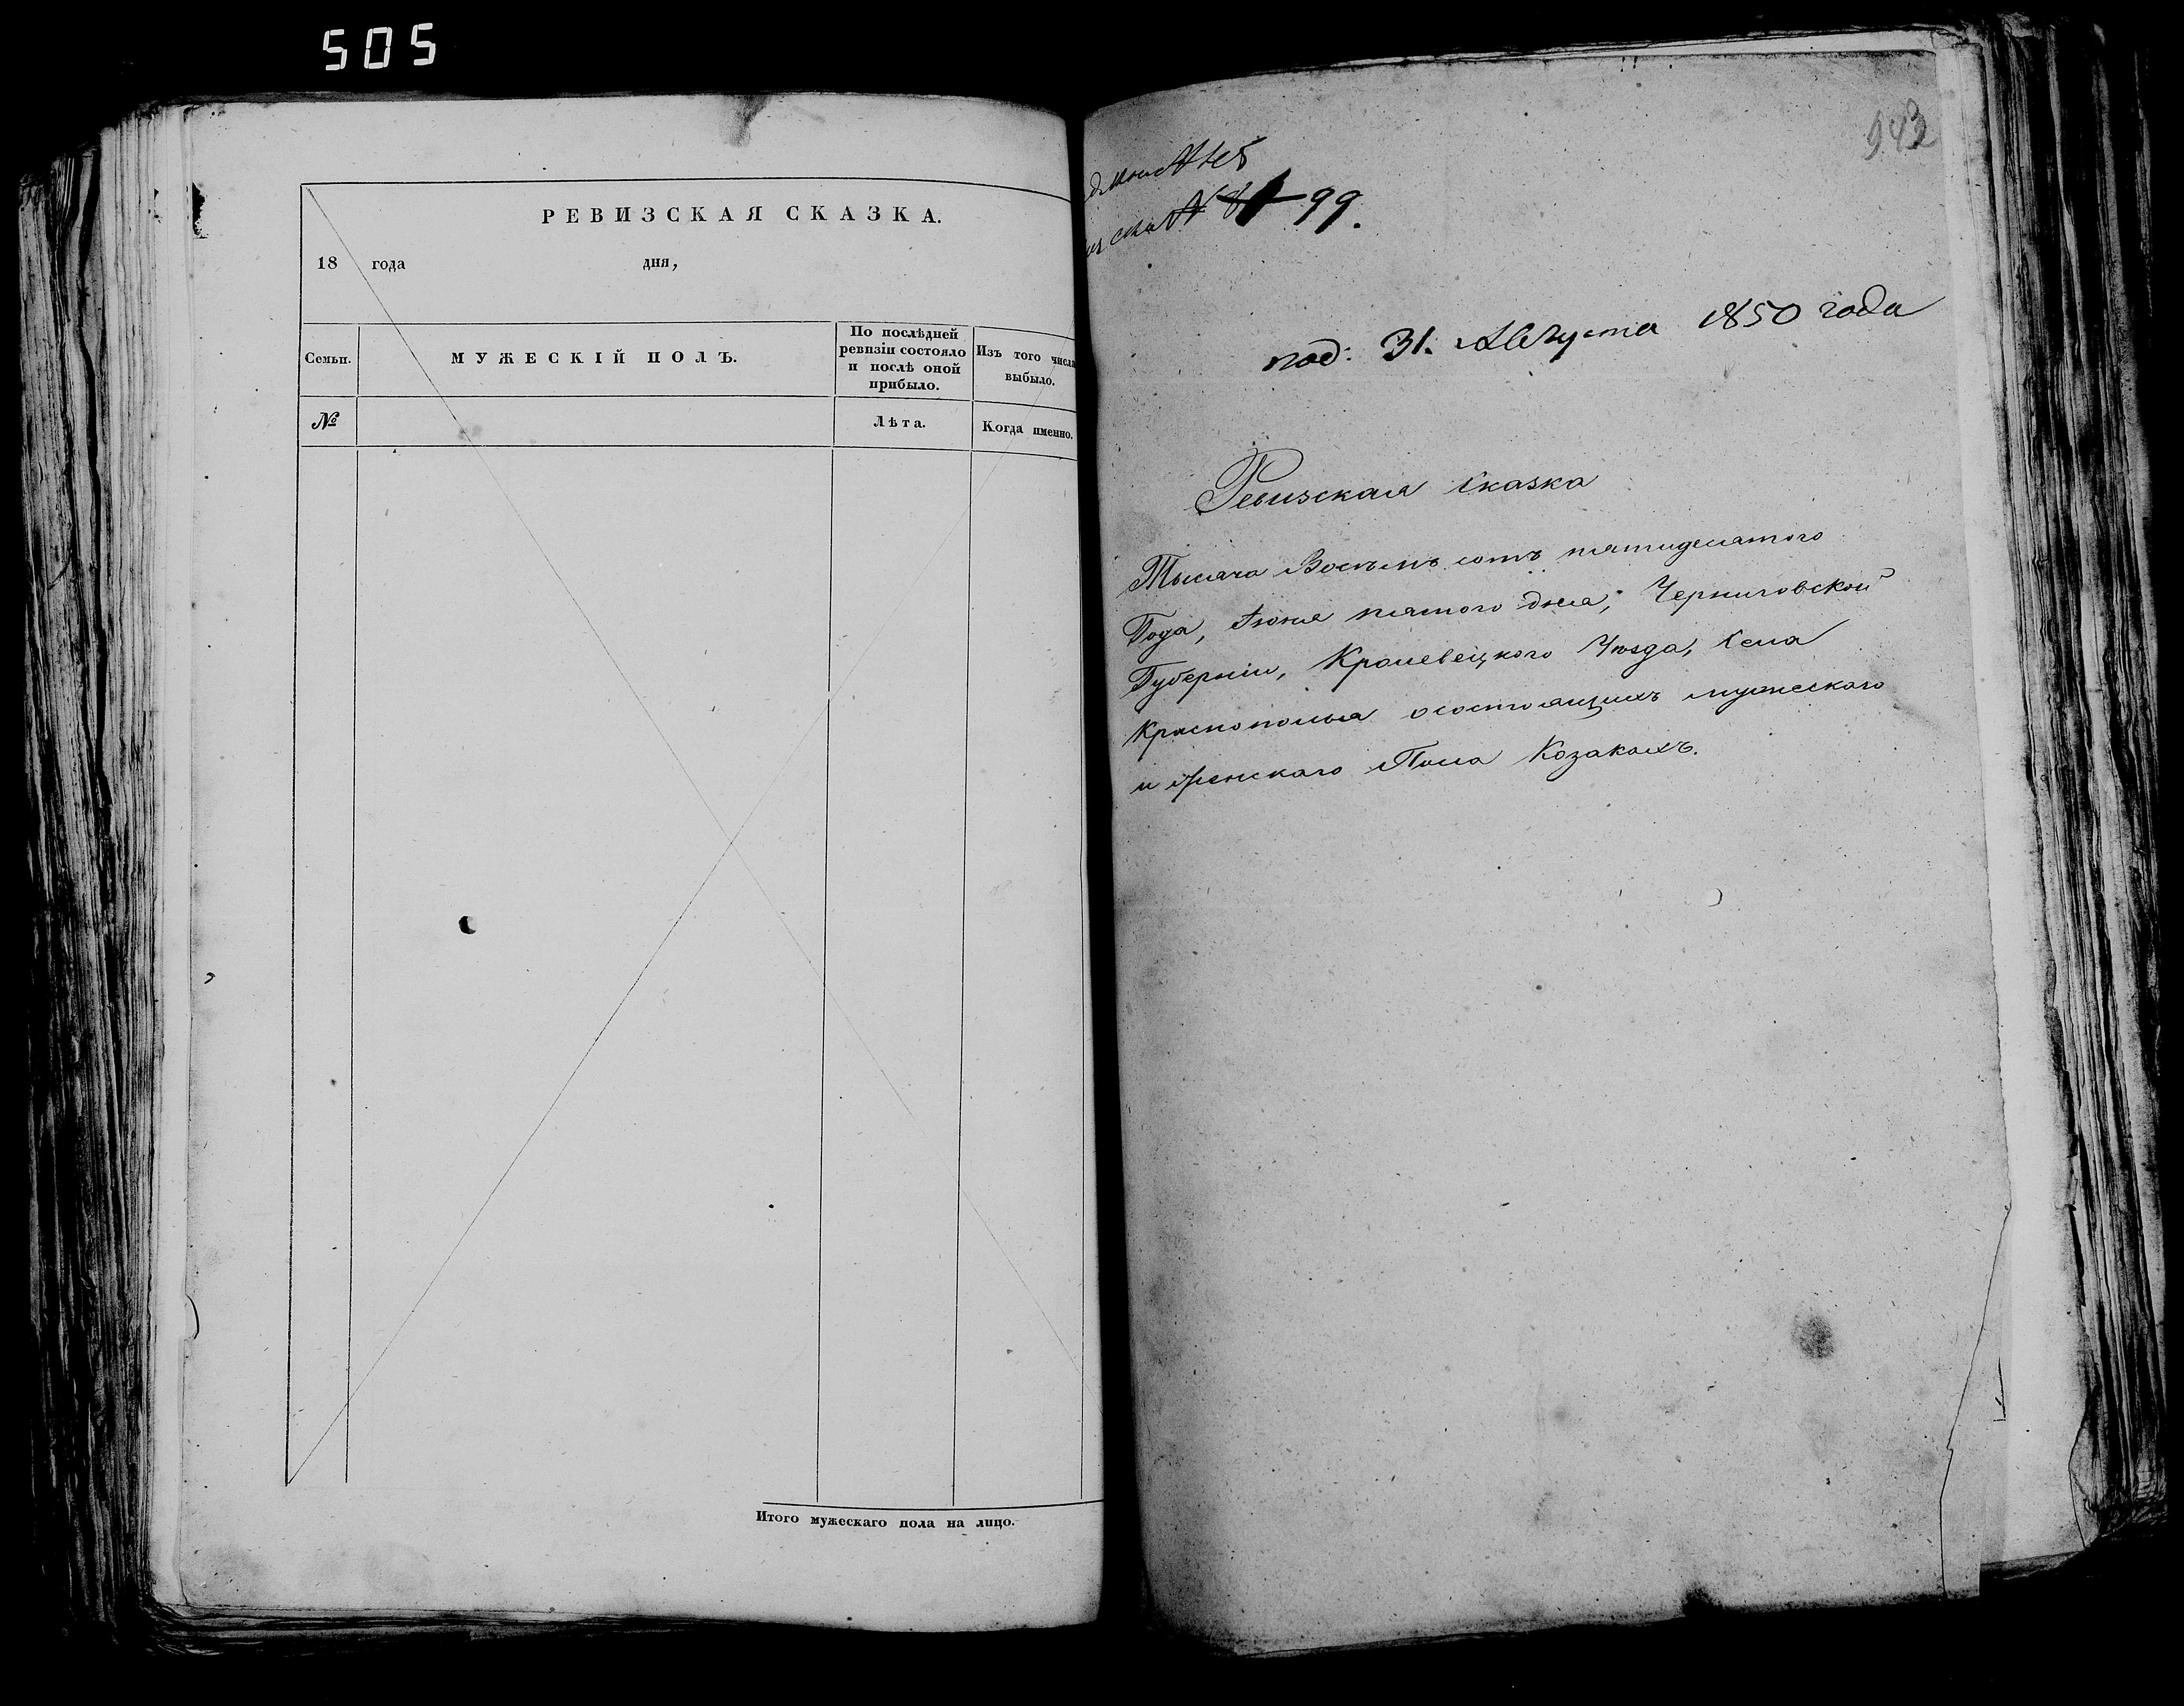 505
РЕВИЗСКАЯ СКАЗКА.
18 года дня,
Семьи.
МУЖЕСКІЙ ПОЛЪ.
По послѣдней
ревизіи состояло
и послѣ оной
прибыло.
Изъ того числа
выбыло.
№
Лѣта.
Когда именно.
Итого мужескаго пола на лицо.
943
99.
под: 31. Августа 1850 года
Ревизская Сказка
Тысяча Восемь сотъ пятидесятого
Года, Июня пятого дня, Черниговской
Губерніи, Кролевецкого Уѣзда, Села
Краснополья о состоящихъ мужескаго
и женскаго Пола Козакахъ.